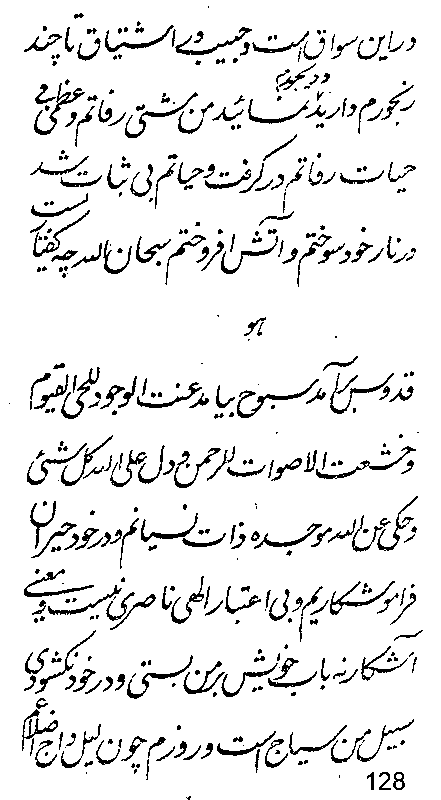 در این سواق است و حبیب در اشتیاق تا چند
رنجورم دارید و مهجورم نمائید من مشتی رفاتم و عظمی بی
حیات رفاتم در گرفت و حیاتم بی ثبات شد
در نار خود سوختم و آتش افروختم سبحان الله چه کفیتا است
هو
قدوس برآمد سبوح بیامد عنت الوجود للحی القیوم
و خشعت الاصوات للرحمن و دل علی الله کل شئی
و حکی عن الله موجده ذات نسیانم و در خود حیران
فراموشکاریم و بی اعتبار الهی ناصری نیست و معنی
آشکار نه باب خویش بر من بستی و در خود نگشودی
سبیل من سیاج است و روزم چون لیل داج
128